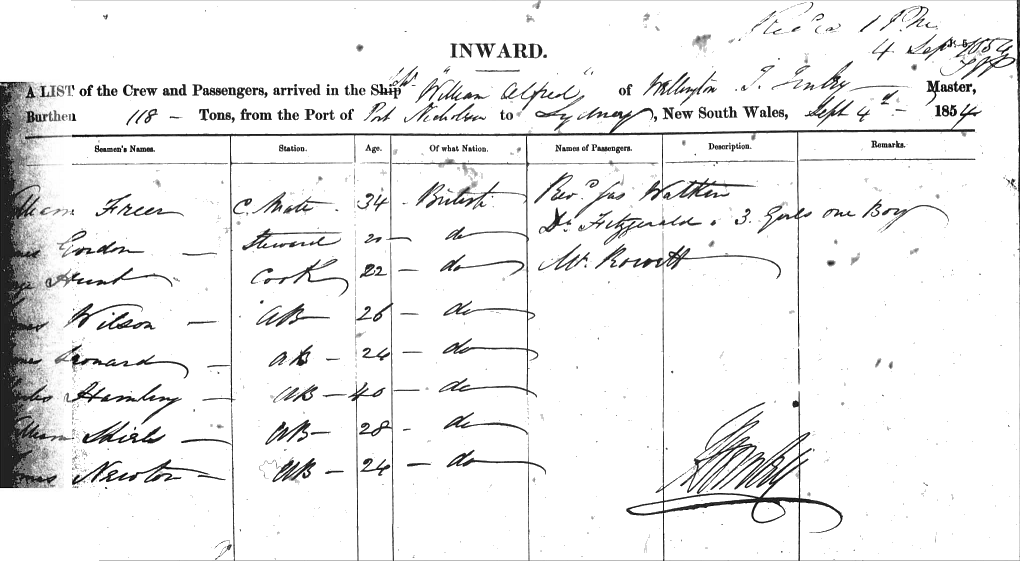 Rec'd 1 PM
4 Sep 1854
INWARD.
A LIST of the Crew and Passengers, arrived in the Ship "William Alfred" of Wellington T. Master,
Burthen 118 — Tons, from the Port of Port Nicholson to Sydney, New South Wales, Sept 4th 1854
Seamen's Names. Station. Age. Of what Nation. Names of Passengers. Description. Remarks.
Freer C. Mate. 34 British Revd Jas Watkin
Gordon — Steward 20 — do Dr Fitzgerald & 3 Girls one Boy
Hunt Cook 22 — do Mr. Rowett
Wilson — AB — 26 — do
Leonard — AB — 24 — do
Hambly — AB — 40 — do
— AB — 28 — do
Newton — AB — 24 — do